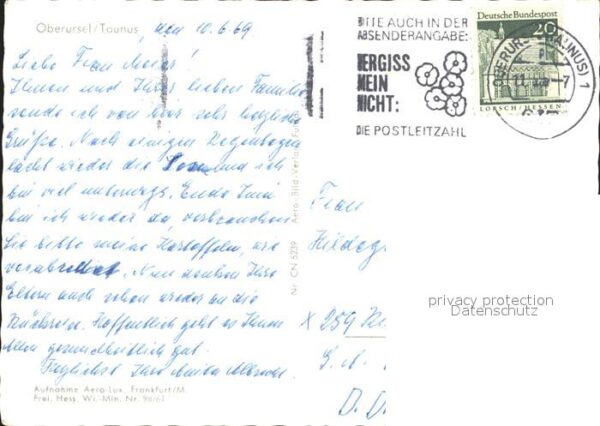 Oberursel / Taunus
, den 10.6.69
Liebe Frau
Ihnen und Ihrer lieben Familie
sende ich von hier sehr herzliche
Grüße. Nach einigen Regentagen
lacht wieder die Sonne und ich
bin viel unterwegs. Ende Juni
bin ich wieder da, verbrauchen
Sie bitte meine Kartoffeln, wie
verabredet. Nun denken Ihre
Eltern auch schon wieder an die
Rückreise. Hoffentlich geht es Ihnen
allen gesundheitlich gut.
Herzlichst Ihre Anita Albrecht
Aufnahme Aero-Lux, Frankfurt/M.
Frei. Hess. Wi.-Min. Nr. 96/61
Nr. CN 5239 Aero-Bild-Verlag
BITTE AUCH IN DER
ABSENDERANGABE:
VERGISS
MEIN
NICHT:
DIE POSTLEITZAHL
Deutsche Bundespost
20
LORSCH/HESSEN
OBERURSEL (TAUNUS) 1
11 -7
Frau
Hildeg
X 259
privacy protection
Datenschutz